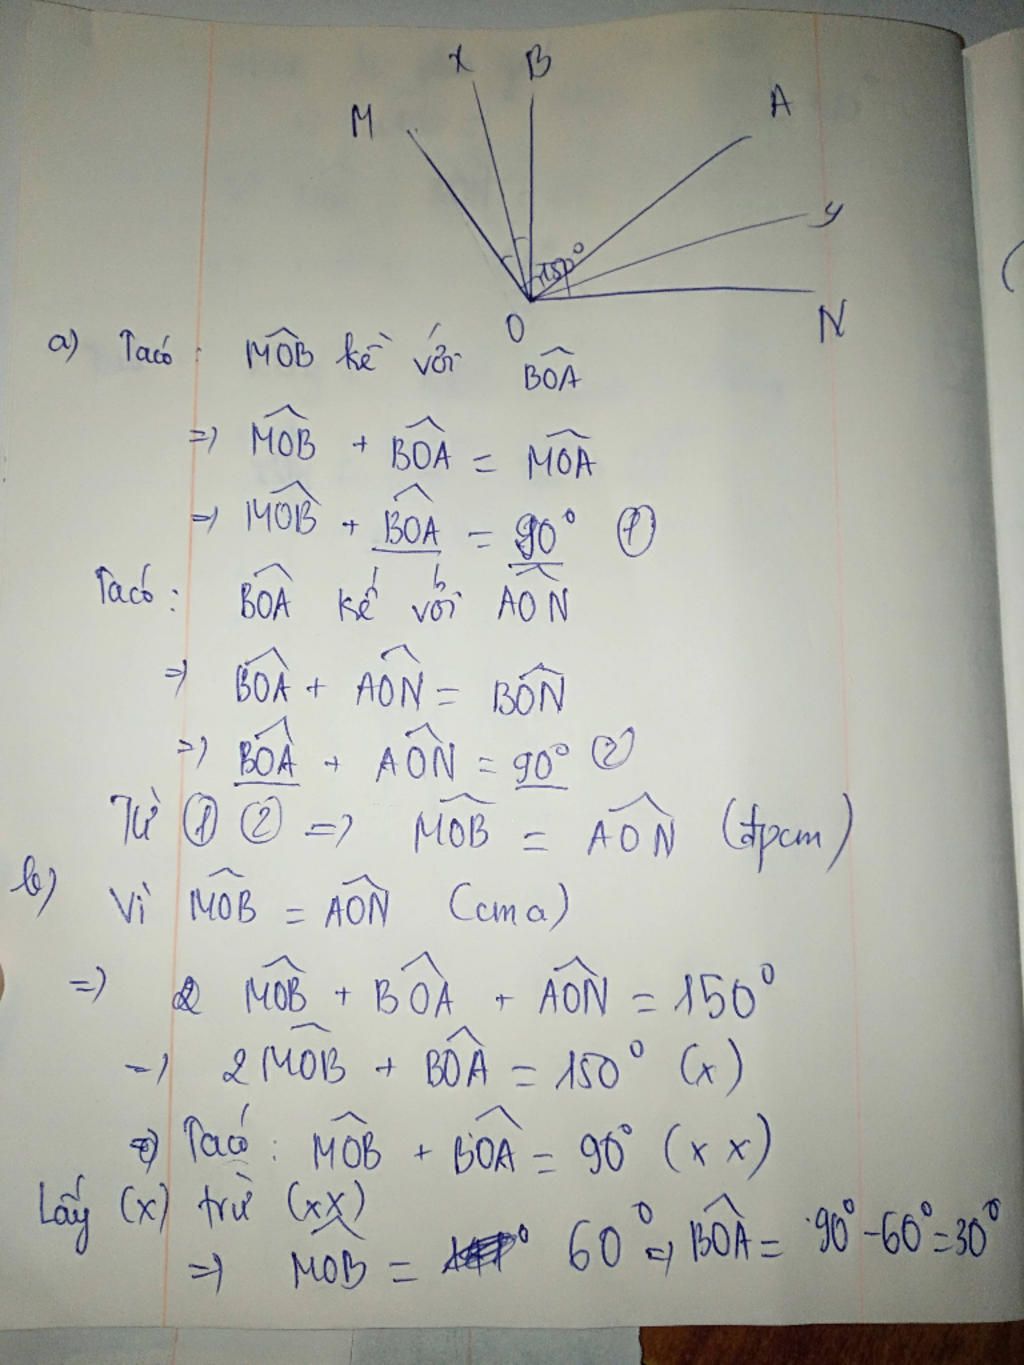 x B
M A
y
150°
O N
a) Ta có : MOB kề với BOA
=> MOB + BOA = MOA
=> MOB + BOA = 90° ①
Ta có : BOA kề với AON
=> BOA + AON = BON
=> BOA + AON = 90° ②
Từ ① ② => MOB = AON (đpcm)
b) Vì MOB = AON (cm a)
=> MOB + BOA + AON = 150°
=> 2MOB + BOA = 150° (x)
Ta có : MOB + BOA = 90° (x x)
Lấy (x) trừ (xx)
=> MOB = 60° => BOA = 90° - 60° = 30°